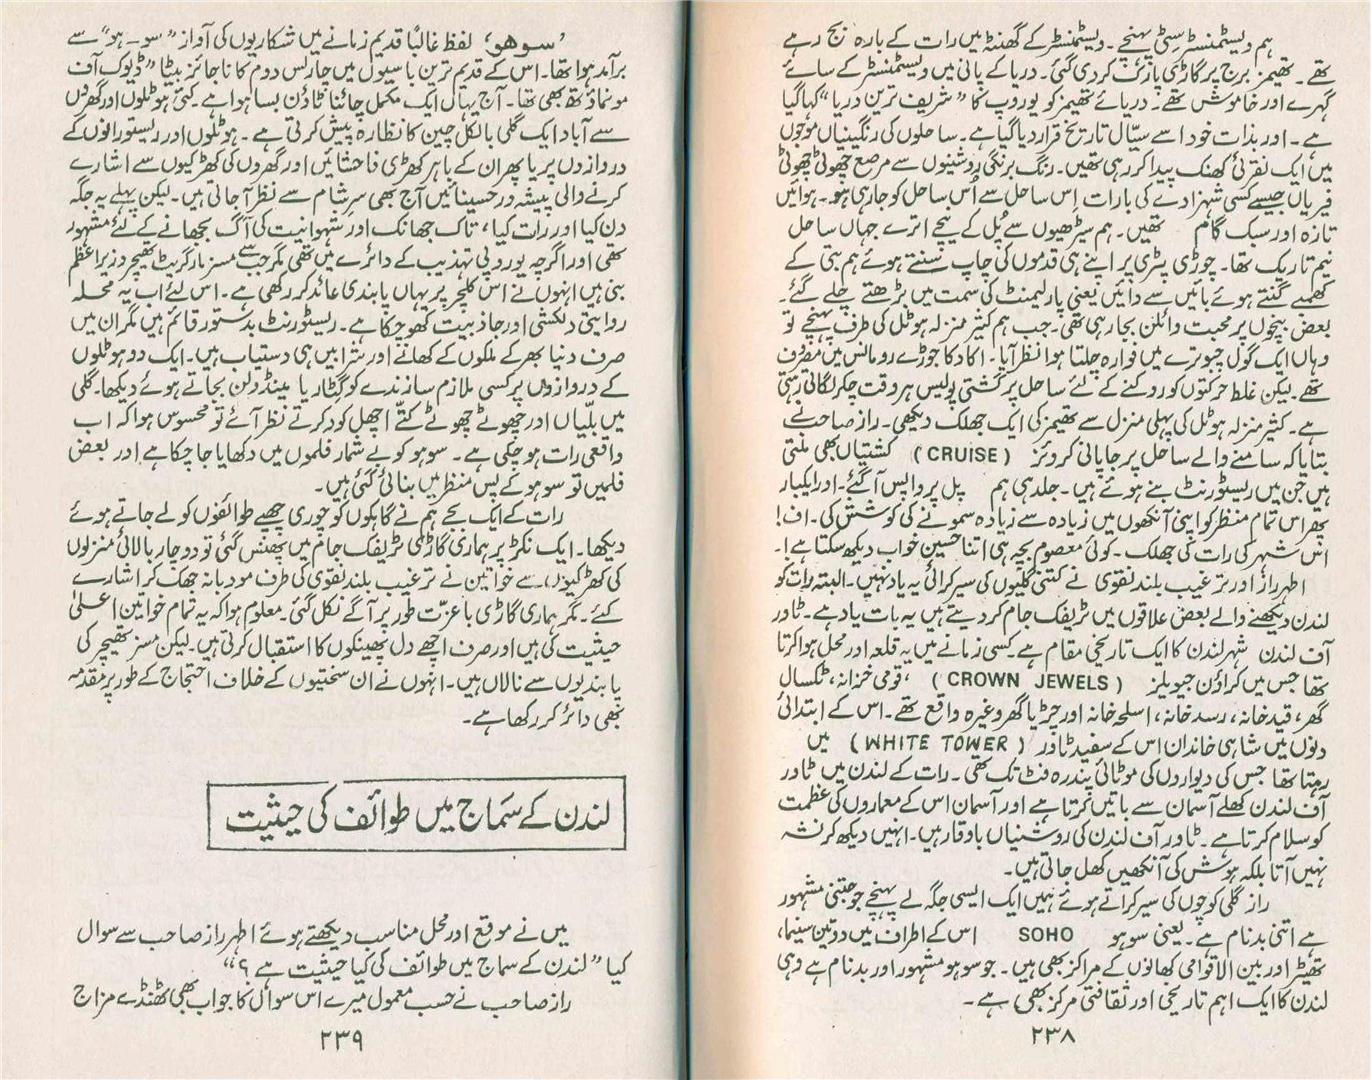 ہم ویسٹمنسٹر سٹی پہنچے۔ ویسٹمنسٹر کے گھنٹہ میں رات کے بارہ بج رہے
تھے۔ تھیمز برج پر گاڑی پارک کردی گئی۔ دریا کے پانی میں ویسٹمنسٹر کے سائے
گہرے اور خاموش تھے۔ دریائے تھیمز کو یوروپ کا "شریف ترین دریا" کہا گیا
ہے۔ اور بذات خود اسے سیّال تاریخ قرار دیا گیا ہے۔ ساحلوں کی رنگینیاں موجوں
میں ایک نقرئی کھنک پیدا کر رہی تھیں۔ رنگ برنگی روشنیوں سے مرصع چھوٹی چھوٹی
فیریاں جیسے کسی شہزادے کی بارات اِس ساحل سے اُس ساحل کو جارہی ہو۔ ہوائیں
تازہ اور سبک گام تھیں۔ ہم سیڑھیوں سے پُل کے نیچے اترے جہاں ساحل
نیم تاریک تھا۔ چوڑی پٹری پر اپنے ہی قدموں کی چاپ سنتے ہوئے ہم بتی کے
کھمبے گنتے ہوئے بائیں سے دائیں یعنی پارلیمنٹ کی سمت میں بڑھتے چلے گئے۔
بعض بنچوں پر محبت وائلن بجا رہی تھی۔ جب ہم کثیر منزلہ ہوٹل کی طرف پہنچے تو
وہاں ایک گول چبوترے میں فوارہ چلتا ہوا نظر آیا۔ اکا دکا جوڑے رومانس میں مصرف
تھے۔ لیکن غلط حرکتوں کو روکنے کے لئے ساحل پر گشتی پولیس ہر وقت چکر لگاتی رہتی
ہے۔ کثیر منزلہ ہوٹل کی پہلی منزل سے تھیمز کی ایک جھلک دیکھی۔ راز صاحب نے
بتایا کہ سامنے والے ساحل پر جاپانی کروئز (CRUISE) کشتیاں بھی ملتی
ہیں جن میں ریسٹورنٹ بنے ہوئے ہیں۔ جلد ہی ہم پل پر واپس آگئے۔ اور ایکبار
پھر اس تمام منظر کو اپنی آنکھوں میں زیادہ سے زیادہ سمونے کی کوشش کی۔ اف!
اس شہر کی رات کی جھلک۔ کوئی معصوم بچہ ہی اتنا حسین خواب دیکھ سکتا ہے!۔
اطہر راز اور ترغیب بلند نقوی نے کتنی گلیوں کی سیر کرائی یہ یاد نہیں۔ البتہ رات کو
لندن دیکھنے والے بعض علاقوں میں ٹریفک جام کر دیتے ہیں یہ بات یاد ہے۔ ٹاور
آف لندن شہر لندن کا ایک تاریخی مقام ہے کسی زمانے میں یہ قلعہ اور محل ہوا کرتا
تھا جس میں کراؤن جیویلز (CROWN JEWELS) ، قومی خزانہ، ٹکسال
گھر، قید خانہ، رسد خانہ، اسلحہ خانہ اور چڑیا گھر وغیرہ واقع تھے۔ اس کے ابتدائی
دنوں میں شاہی خاندان اس کے سفید ٹاور (WHITE TOWER) میں
رہتا تھا جس کی دیواروں کی موٹائی پندرہ فٹ تک تھی۔ رات کے لندن میں ٹاور
آف لندن کھلے آسمان سے باتیں کرتا ہے اور آسمان اس کے معماروں کی عظمت
کو سلام کرتا ہے۔ ٹاور آف لندن کی روشنیاں باوقار ہیں۔ انہیں دیکھ کر نشہ
نہیں آتا بلکہ ہوش کی آنکھیں کھل جاتی ہیں۔
راز گلی کوچوں کی سیر کراتے ہوئے ہمیں ایک ایسی جگہ لے پہنچے جو جتنی مشہور
ہے اتنی بدنام ہے۔ یعنی سوہو SOHO اس کے اطراف میں دو تین سینما،
تھیٹر اور بین الاقوامی کھانوں کے مراکز بھی ہیں۔ جو سوہو مشہور اور بدنام ہے وہی
لندن کا ایک اہم تاریخی اور ثقافتی مرکز بھی ہے۔
۲۳۸
'سوھو' لفظ غالباً قدیم زمانے میں شکاریوں کی آواز "سو۔ہو" سے
برآمد ہوا تھا۔ اس کے قدیم ترین باسیوں میں چارلس دوم کا ناجائز بیٹا "ڈیوک آف
مونماؤتھ بھی تھا۔ آج یہاں ایک مکمل چائنا ٹاؤن بسا ہوا ہے۔ کئی ہوٹلوں اور گھروں
سے آباد ایک گلی بالکل چین کا نظارہ پیش کرتی ہے۔ ہوٹلوں اور ریستورانوں کے
دروازوں پر یا پھر ان کے باہر کھڑی فاحشائیں اور گھروں کی کھڑکیوں سے اشارے
کرنے والی پیشہ ور حسینائیں آج بھی سرِ شام سے نظر آجاتی ہیں۔ لیکن پہلے یہ جگہ
دن کیا اور رات کیا، تاک جھانک اور شہوانیت کی آگ بجھانے کے لئے مشہور
تھی اور اگرچہ یوروپی تہذیب کے دائرے میں تھی مگر جب سے مسز مارگریٹ تھیچر وزیر اعظم
بنی ہیں انہوں نے اس کلچر پر یہاں پابندی عائد کر رکھی ہے۔ اس لئے اب یہ محلہ
روایتی دلکشی اور جاذبیت کھو چکا ہے۔ ریسٹورنٹ بدستور قائم ہیں مگر ان میں
صرف دنیا بھر کے ملکوں کے کھانے اور شرابیں ہی دستیاب ہیں۔ ایک دو ہوٹلوں
کے دروازوں پر کسی ملازم سازندے کو گٹار یا مینڈولن بجاتے ہوئے دیکھا۔ گلی
میں بلّیاں اور چھوٹے چھوٹے کتّے اچھل کود کرتے نظر آئے تو محسوس ہوا کہ اب
واقعی رات ہو چکی ہے۔ سوہو کو بے شمار فلموں میں دکھایا جا چکا ہے اور بعض
فلمیں تو سوہو کے پس منظر میں بنائی گئی ہیں۔
رات کے ایک بجے ہم نے گاہکوں کو چوری چھپے طوائفوں کو لے جاتے ہوئے
دیکھا۔ ایک نکڑ پر ہماری گاڑی ٹریفک جام میں پھنس گئی تو دو چار بالائی منزلوں
کی کھڑکیوں سے خواتین نے ترغیب بلند نقوی کی طرف مودبانہ جھک کر اشارے
کئے۔ مگر ہماری گاڑی باعزت طور پر آگے نکل گئی۔ معلوم ہوا کہ یہ تمام خواتین اعلیٰ
حیثیت کی ہیں اور صرف اچھے دل پھینکوں کا استقبال کرتی ہیں۔ لیکن مسز تھیچر کی
پابندیوں سے نالاں ہیں۔ انہوں نے ان سختیوں کے خلاف احتجاج کے طور پر مقدمہ
بھی دائر کر رکھا ہے۔
لندن کے سماج میں طوائف کی حیثیت
میں نے موقع اور محل مناسب دیکھتے ہوئے اطہر راز صاحب سے سوال
کیا "لندن کے سماج میں طوائف کی کیا حیثیت ہے؟"
راز صاحب نے حسب معمول میرے اس سوال کا جواب بھی ٹھنڈے مزاج
۲۳۹